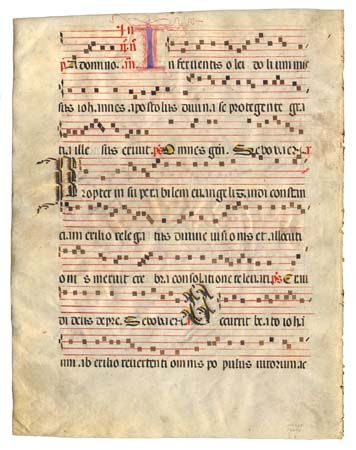 A domino. In feruentis olei dolium mis
sus iohannes apostolus diuina se protegente gra
tia ille sus exiuit. ps Omnes gen. Seuouae
Propter insuperabilem euangelizandi constan
tiam exilio relegatus diuine uisionis et allocuti
onis meruit crebra consolatione releuari ps Exau
di deus depre. Seuouae Occurrit beato iohā
ni ab exilio reuertenti omnis populus uirorum ac